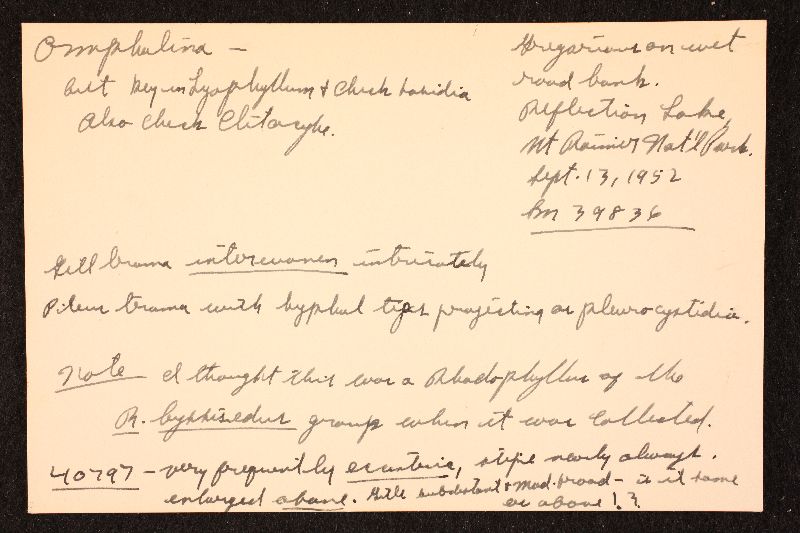 Omphalina –
but key in Lyophyllum & Check basidia
Also check Clitocybe.
Gregarious on wet
road bank.
Reflection Lake,
Mt Rainier Nat'l Park.
Sept. 13, 1952
39836
Gill trama interwoven intricately
Pileus trama with hyphal tips projecting as pleurocystidia.
Note I thought this was a Rhodophyllus of the
R. byssisedus group when it was collected.
40797 – very frequently eccentric, stipe nearly always
enlarged above. Gills subdistant & mod. broad – is it same
as above!?